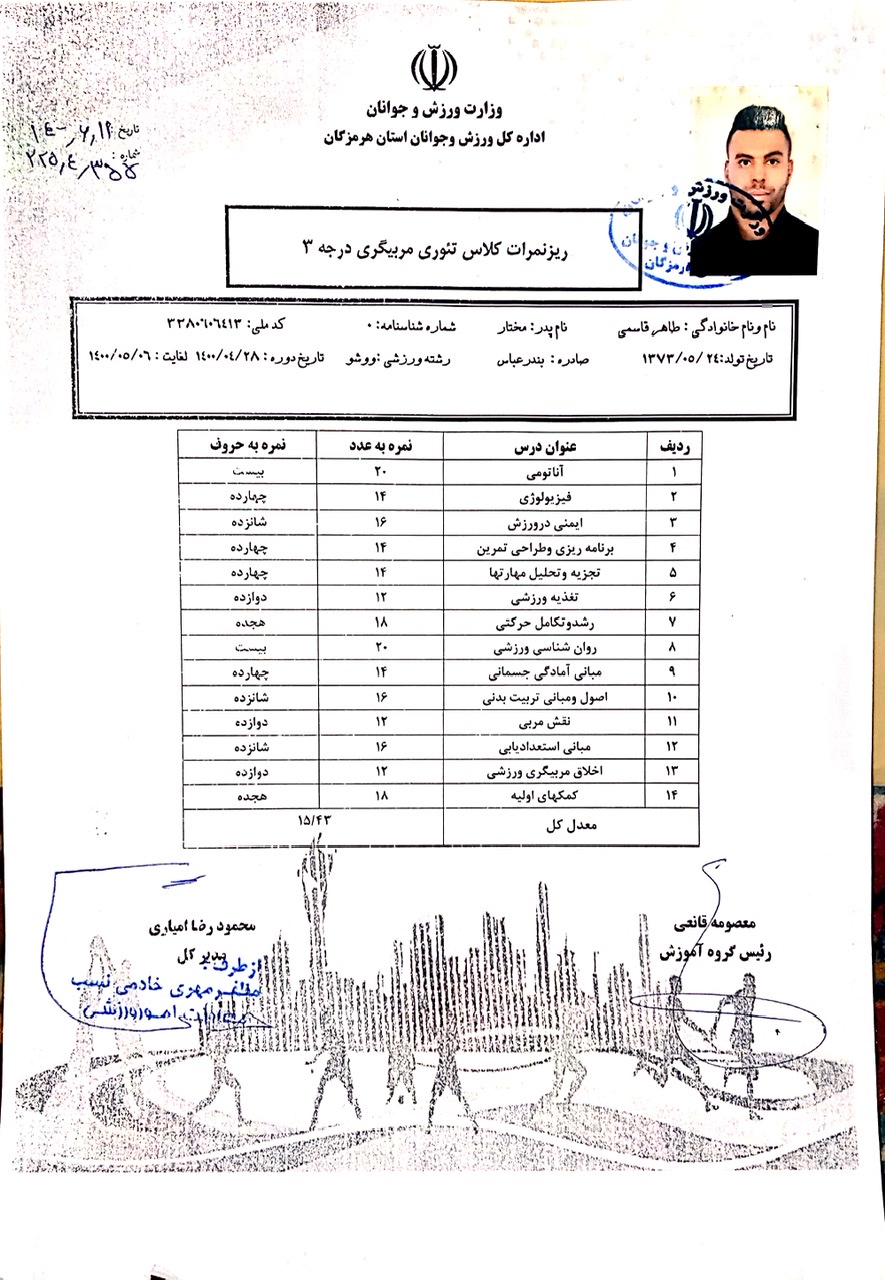 وزارت ورزش و جوانان
اداره کل ورزش وجوانان استان هرمزگان
تاریخ
شماره:
ریزنمرات کلاس تئوری مربیگری درجه ۳
نام ونام خانوادگی : طاهر قاسمی نام پدر: مختار شماره شناسنامه: ۰ کد ملی: ۳۳۸۰۶۰۶۴۱۳
تاریخ تولد: ۱۳۷۳/۰۵/۲۴ صادره : بندرعباس رشته ورزشی :ووشو تاریخ دوره : ۱۴۰۰/۰۴/۲۸ لغایت : ۱۴۰۰/۰۵/۰۶
ردیف عنوان درس نمره به عدد نمره به حروف
۱ آناتومی ۲۰ بیست
۲ فیزیولوژی ۱۴ چهارده
۳ ایمنی درورزش ۱۶ شانزده
۴ برنامه ریزی وطراحی تمرین ۱۴ چهارده
۵ تجزیه وتحلیل مهارتها ۱۴ چهارده
۶ تغذیه ورزشی ۱۲ دوازده
۷ رشدوتکامل حرکتی ۱۸ هجده
۸ روان شناسی ورزشی ۲۰ بیست
۹ مبانی آمادگی جسمانی ۱۴ چهارده
۱۰ اصول ومبانی تربیت بدنی ۱۶ شانزده
۱۱ نقش مربی ۱۲ دوازده
۱۲ مبانی استعدادیابی ۱۶ شانزده
۱۳ اخلاق مربیگری ورزشی ۱۲ دوازده
۱۴ کمکهای اولیه ۱۸ هجده
معدل کل ۱۵/۴۳
معصومه قانعی
رئیس گروه آموزش
محمود رضا امیاری
مدیر کل
از طرف
مهدی خادمی نسب